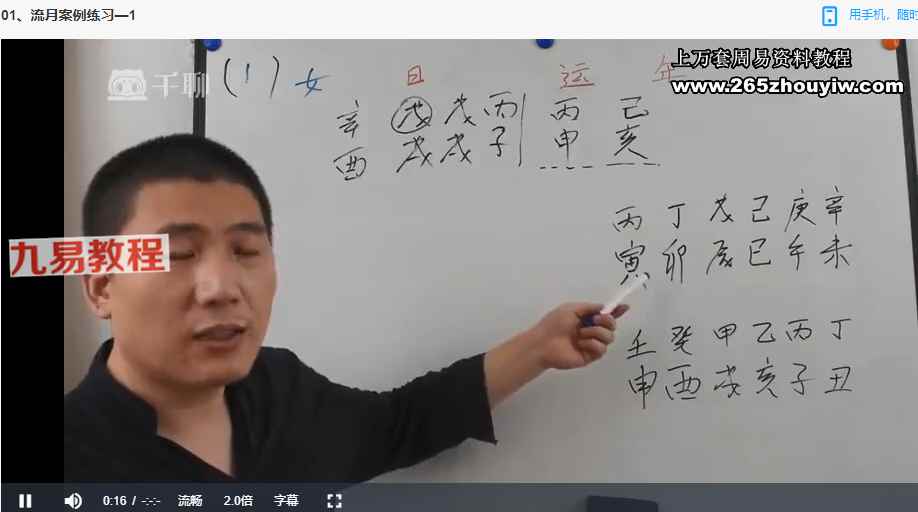 01、流月案例练习—1
用手机，随时
千聊
上万套周易资料教程
www.265zhouyiw.com
(1) 女 日 运 年
辛 戊 戊 丙 丙 己
酉 戌 戌 子 申 亥
丙 丁 戊 己 庚 辛
寅 卯 辰 巳 午 未
九易教程
壬 癸 甲 乙 丙 丁
申 酉 戌 亥 子 丑
0:16 / -:-:- 流畅 2.0倍 字幕